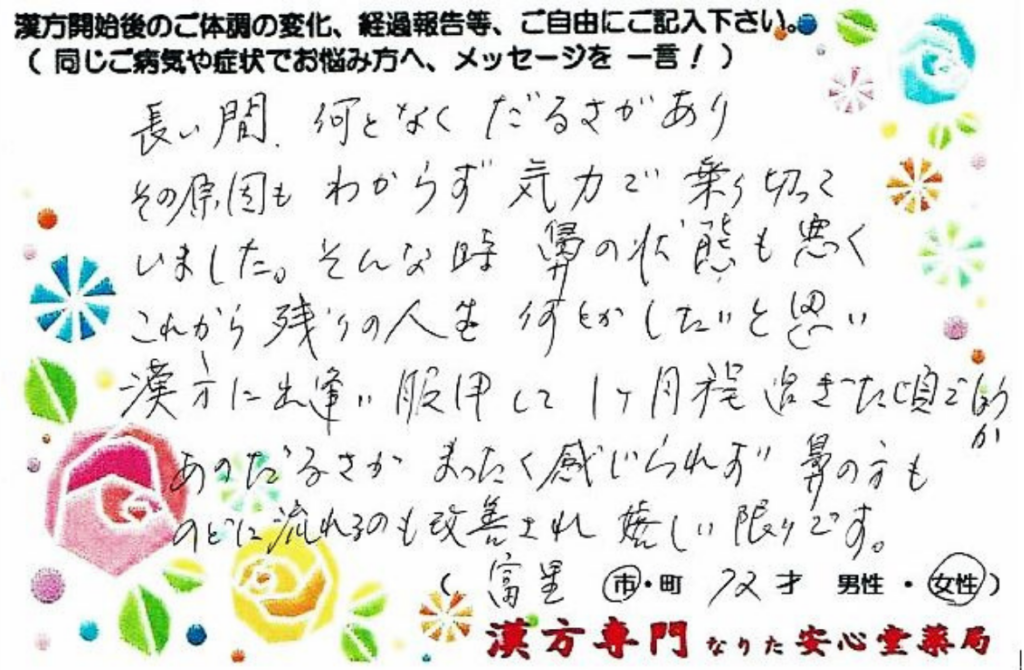 漢方開始後のご体調の変化、経過報告等、ご自由にご記入下さい。
（ 同じご病気や症状でお悩み方へ、メッセージを 一言！ ）
長い間、何となく だるさがあり
その原因も わからず 気力で 乗り切って
いました。そんな時 鼻の状態も悪く
これから 残りの人生 何とかしたいと思い
漢方に出逢い 服用して 1ヶ月程 過ぎた頃でしょうか
あのだるさが まったく感じられず 鼻の方も
のどに流れるのも改善され 嬉しい限りです。
（ 富里 市・町 72才 男性 ・ 女性 ）
漢方専門 なりた 安心堂薬局